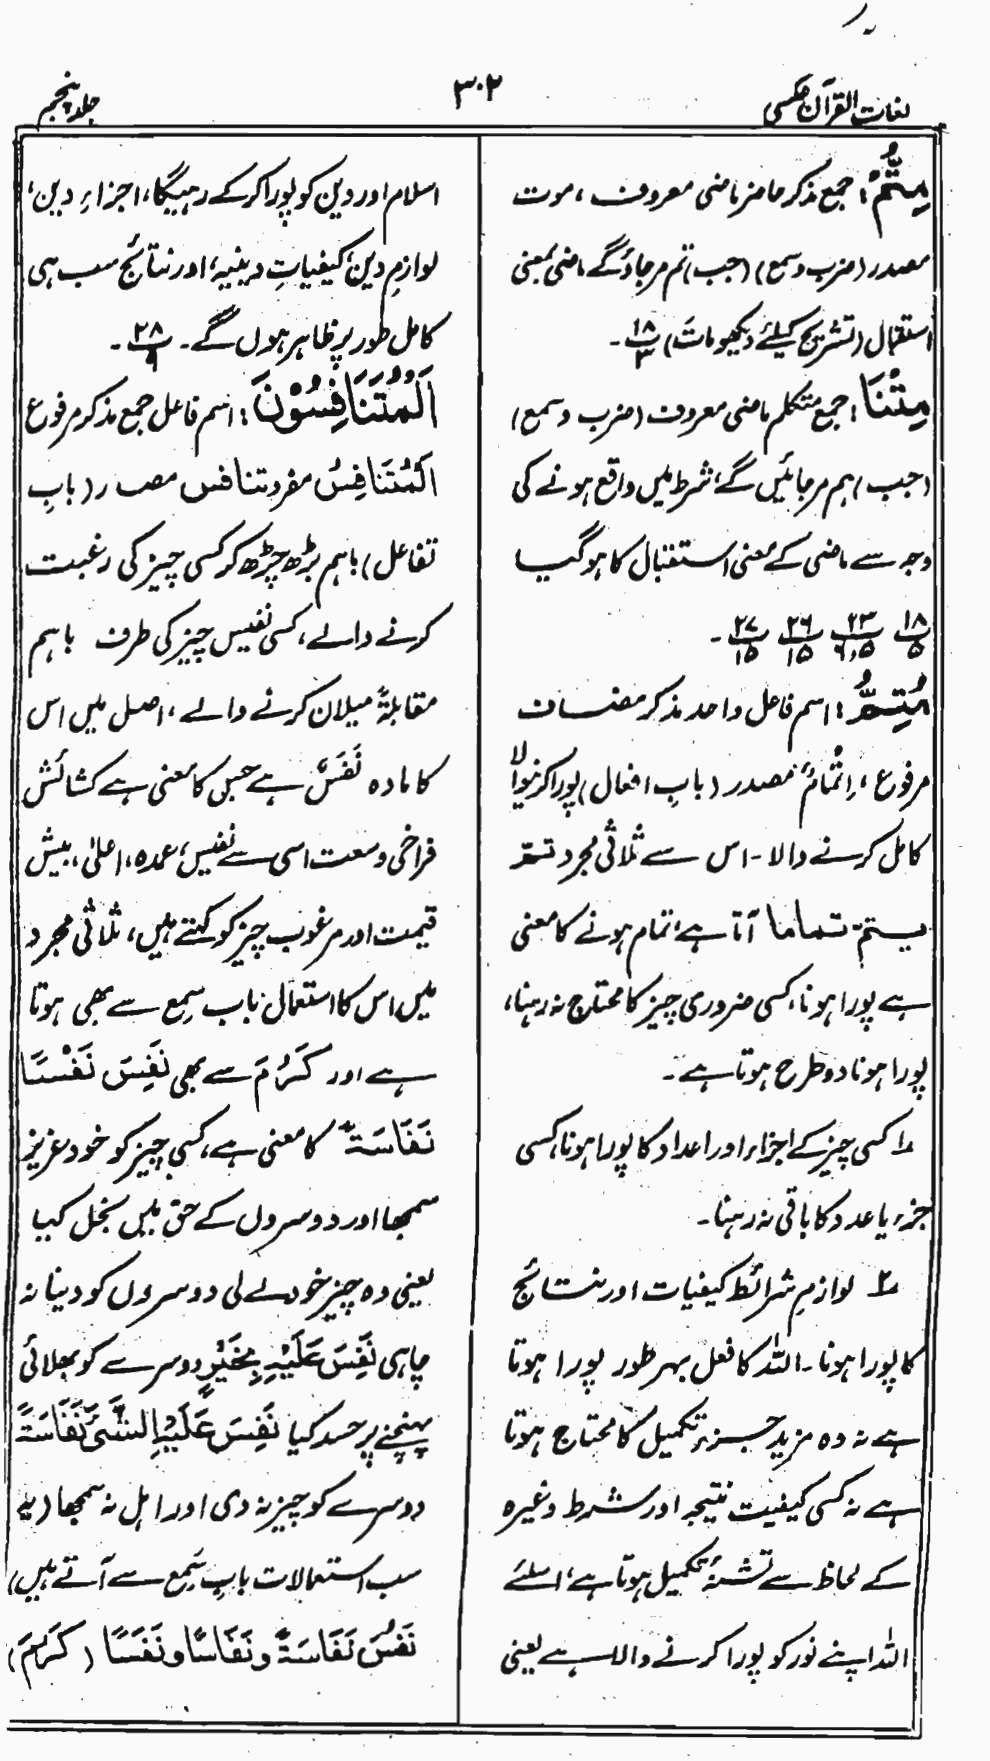 لغات القرآن عکسی
۳۰۲
جلد پنجم
مِتُّمْ: جمع مذکر حاضر ماضی معروف، موت
مصدر (ضرب و سمع) (جب) تم مر جاؤ گے ماضی بمعنی
استقبال (تشریح کیلئے دیکھو مَاتَ) ۱۸/۳ ۔
مِتْنَا: جمع متکلم ماضی معروف (ضرب و سمع)
(جب) ہم مر جائیں گے، شرط میں واقع ہونے کی
وجہ سے ماضی کے معنی استقبال کا ہوگیا
۱۸/۵ ۲۳/۶،۵ ۲۶/۱۵ ۲۷/۱۵ ۔
مُتِمُّ: اسم فاعل واحد مذکر مضاف
مرفوع، اِتْمَامٌ مصدر (بابِ افعال) پورا کرنیوالا
کامل کرنے والا۔ اس سے ثُلاثی مجرد تمّ
یتمّ تماما آتا ہے، تمام ہونے کا معنی
ہے پورا ہونا، کسی ضروری چیز کا محتاج نہ رہنا،
پورا ہونا دو طرح ہوتا ہے۔
۱ کسی چیز کے اجزاء اور اعداد کا پورا ہونا، کسی
جزء یا عدد کا باقی نہ رہنا۔
۲ لوازم شرائط کیفیات اور نتائج
کا پورا ہونا۔ اللہ کا فعل بہر طور پورا ہوتا
ہے نہ وہ مزید جزء تکمیل کا محتاج ہوتا
ہے نہ کسی کیفیت نتیجہ اور شرط وغیرہ
کے لحاظ سے تشنۂ تکمیل ہوتا ہے، اسلئے
اللہ اپنے نور کو پورا کرنے والا ہے یعنی
اسلام اور دین کو پورا کرکے رہیگا، اجزاءِ دین،
لوازمِ دین، کیفیاتِ دینیہ، اور نتائج سب ہی
کامل طور پر ظاہر ہوں گے۔ ۲۸/۹ ۔
اَلْمُتَنَافِسُوْنَ: اسم فاعل جمع مذکر مرفوع
اَلْمُتَنَافِسُ مفرد تنافس مصدر (بابِ
تفاعل) باہم بڑھ چڑھ کر کسی چیز کی رغبت
کرنے والے، کسی نفیس چیز کی طرف باہم
مقابلۃً میلان کرنے والے، اصل میں اس
کا مادہ نَفَسٌ ہے جس کا معنی ہے کشائش
فراخی وسعت اسی سے نفیس، عمدہ، اعلیٰ، بیش
قیمت اور مرغوب چیز کو کہتے ہیں، ثلاثی مجرد
میں اس کا استعمال باب سَمِع سے بھی ہوتا
ہے اور کَرُمَ سے بھی نَفِسَ نَفْسًا
نَفَاسَۃً کا معنی ہے، کسی چیز کو خود عزیز
سمجھا اور دوسروں کے حق میں بخل کیا
یعنی وہ چیز خود لے لی دوسروں کو دینا نہ
چاہی نَفِسَ عَلَیْہِ بِخَیْرٍ دوسرے کو بھلائی
پہنچنے پر حسد کیا نَفِسَ عَلَیْہِ الشَّیْءَ نَفَاسَۃً
دوسرے کو چیز نہ دی اور اہل نہ سمجھا (یہ
سب استعمالات بابِ سَمِع سے آتے ہیں)
نَفُسَ نَفَاسَۃً و نَفَاسًا و نَفَسًا (کَرُمَ)